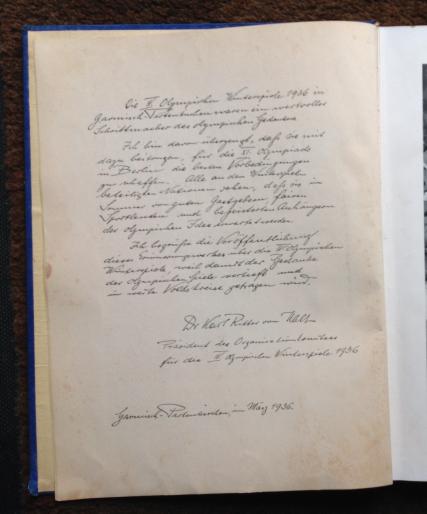 Die IV. Olympischen Winterspiele 1936 in
Garmisch-Partenkirchen waren ein wertvoller
Schrittmacher des olympischen Gedankens.
Ich bin davon überzeugt, daß sie mit
dazu beitragen, für die XI. Olympiade
in Berlin die besten Vorbedingungen
zu schaffen. Alle an den Winterspielen
beteiligten Nationen sahen, daß sie im
Sommer von guten Gastgebern, fairen
Sportsleuten und begeisterten Anhängern
der olympischen Idee erwartet werden.
Ich begrüße die Veröffentlichung
dieses Erinnerungswerkes über die IV. Olympischen
Winterspiele, weil damit der Gedanke
der Olympischen Spiele vertieft und
in weite Volkskreise getragen wird.
Dr Karl Ritter von Halt
Präsident des Organisationskomitees
für die IV. Olympischen Winterspiele 1936
Garmisch-Partenkirchen, im März 1936.